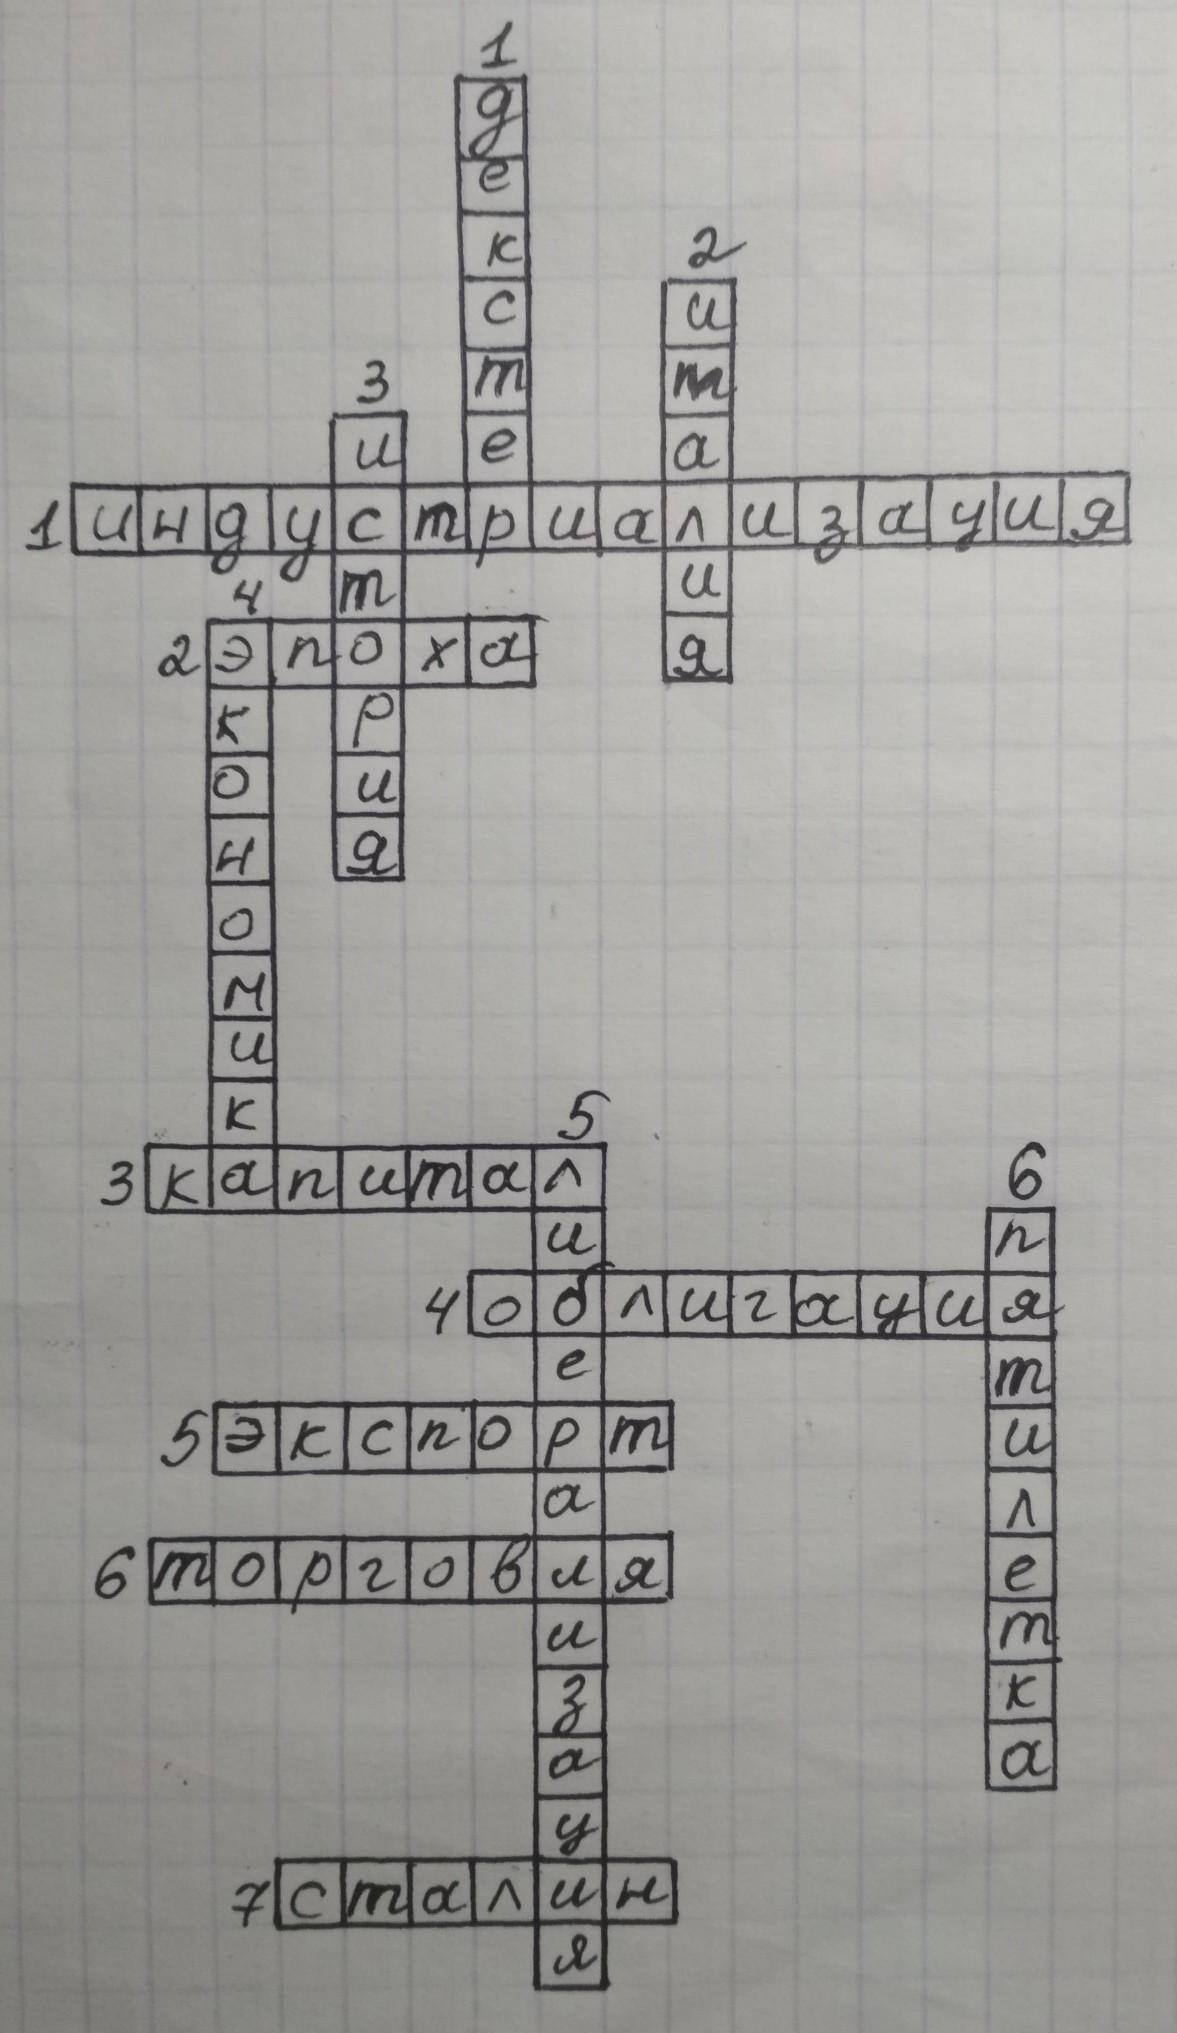 1 декстер
2 италия
3 история
1 индустриализация
4 экономика
2 эпоха
5 либерализация
3 капитал
6 пятилетка
4 облигация
5 экспорт
6 торговля
7 сталин